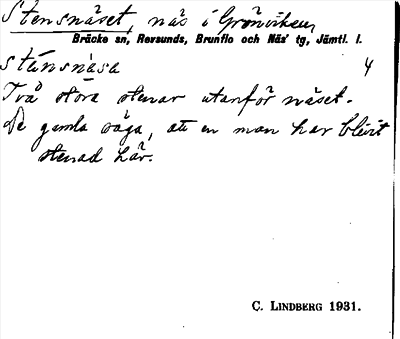 Stensnäset, näs i Grönviken,
Bräcke sn, Revsunds, Brunflo och Näs' tg, Jämtl. l.
stánsnàsa 4
Två stora stenar utanför näset.
De gamla säga, att en man har blivit
stenad här.
C. LINDBERG 1931.